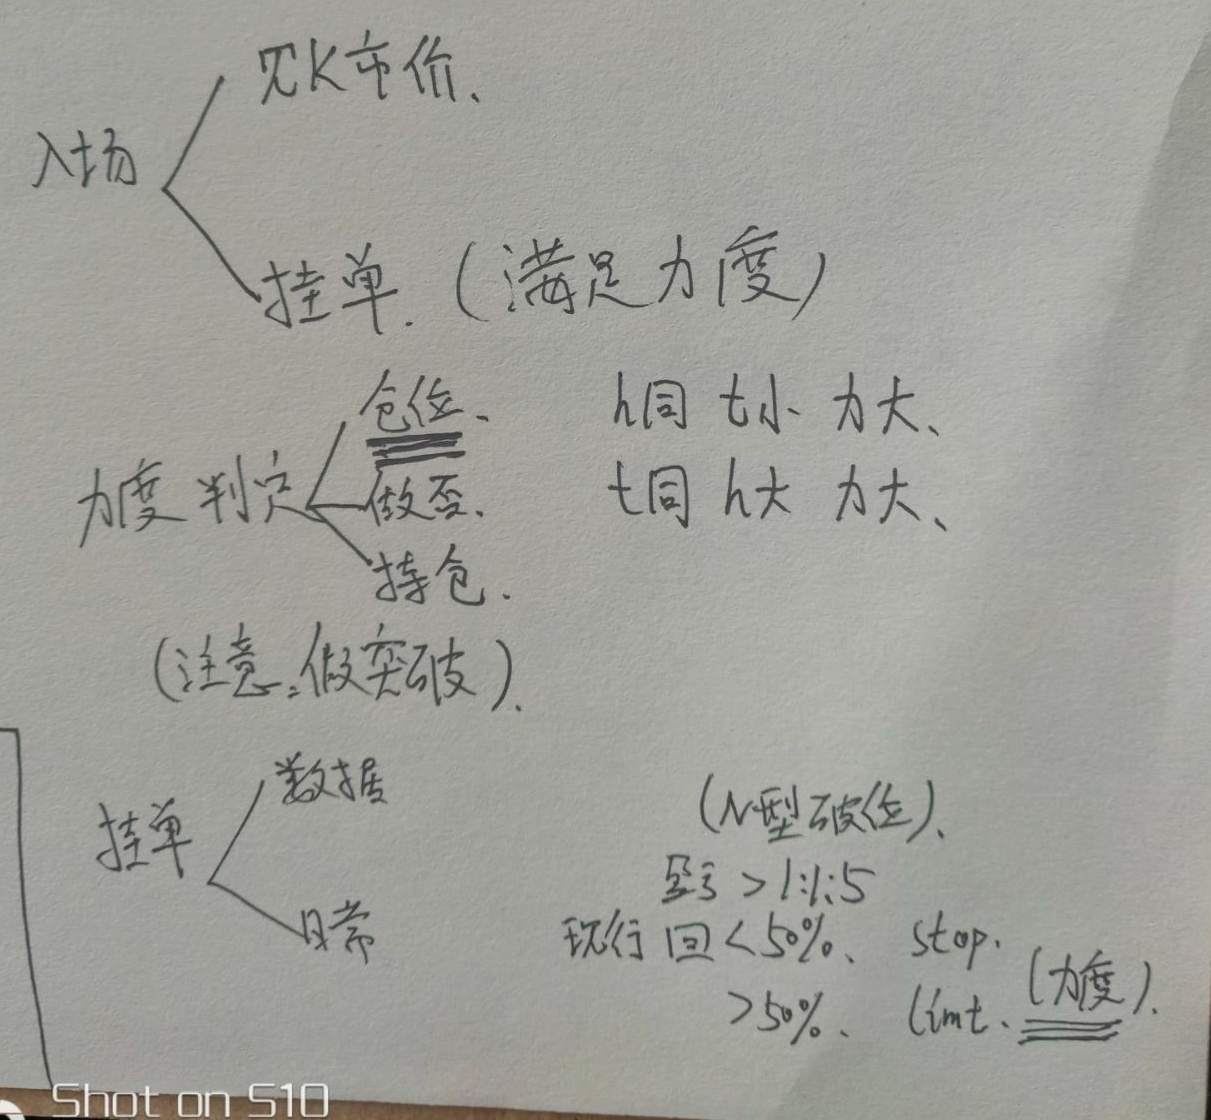 K市价、
入场
挂单.(满足力度)
仓位、 h同 t小 力大、
力度判定
做否. t同 h大 力大、
持仓.
(注意:做突破).
数据
挂单
日常
(N型破位)、
盈亏 >1:1.5
现行回<50%、 stop.
>50%、 limt. (力度).
Shot on S10